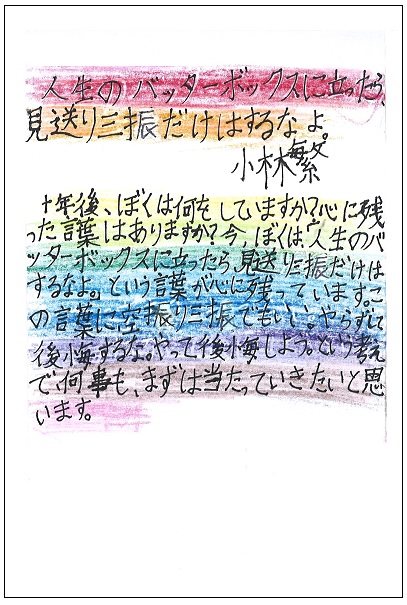 人生のバッターボックスに立ったら、
見送り三振だけはするなよ。
小林繁
十年後、ぼくは何をしていますか?心に残
った言葉はありますか?今、ぼくは、「人生のバ
ッターボックスに立ったら、見送り三振だけは
するなよ。」という言葉が心に残っています。こ
の言葉に空振り三振でもいい。やらずして
後悔するな。やって後悔しよう。という考え
で、何事も、まずは当たっていきたいと思
います。